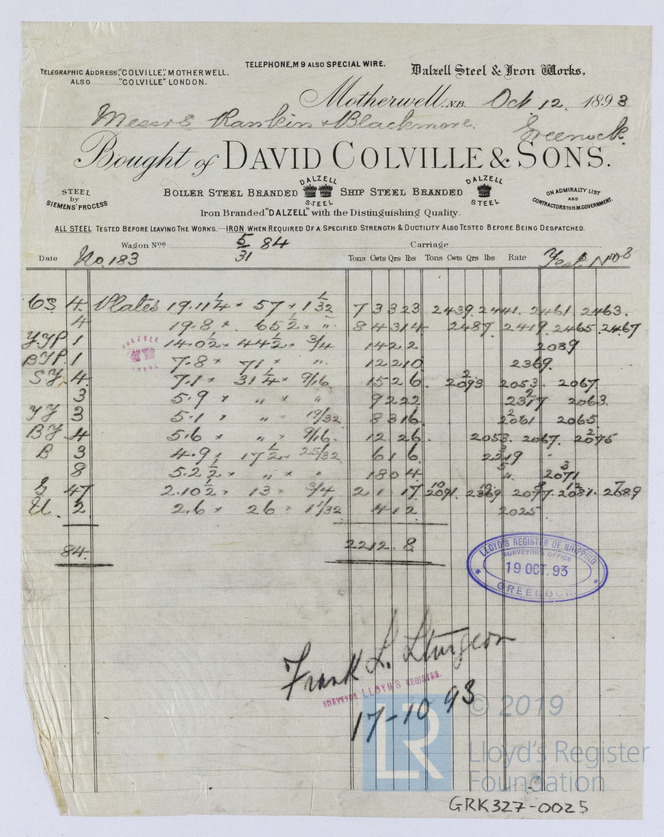 TELEGRAPHIC ADDRESS, "COLVILLE", MOTHERWELL.
ALSO "COLVILLE" LONDON.
TELEPHONE, M 9 ALSO SPECIAL WIRE.
Dalzell Steel & Iron Works.
Motherwell, N.B. Oct 12. 1893
Messrs Rankin & Blackmore. Greenock.
Bought of DAVID COLVILLE & SONS.
STEEL by SIEMENS' PROCESS
BOILER STEEL BRANDED DALZELL STEEL SHIP STEEL BRANDED DALZELL STEEL
ON ADMIRALTY LIST AND CONTRACTORS TO H.M. GOVERNMENT.
Iron Branded "DALZELL" with the Distinguishing Quality.
ALL STEEL TESTED BEFORE LEAVING THE WORKS.—IRON WHEN REQUIRED OF A SPECIFIED STRENGTH & DUCTILITY ALSO TESTED BEFORE BEING DESPATCHED.
Wagon Nos 5/31 84 Carriage
Date No. 183 Tons Cwts Qrs lbs Tons Cwts Qrs lbs Rate Test Nos
4 Plates 19.11 1/4 × 57 × 1 1/32 7 3 3 23 2439. 2441. 2461. 2463.
4 19.8 × 65 1/2 × " 8 4 3 14 2487 2419 2465. 2467
1 14.0 1/2 × 44 1/2 × 3/4 14 2 2 2089
1 7.8 × 71 × " 12 2 10 2369.
4 7.1 × 31 1/4 × 9/16 15 2 6 2093 2053. 2067.
3 5.9 × " × " 9 2 22 2317 2063.
3 5.1 × " × 19/32 8 3 16 2061 2065.
4 5.6 × " × 9/16. 12 2 6 2053. 2067. 2075
B 3 4.9 1/2 × 17 1/2 × 25/32 6 1 6 2219
8 5.2 1/2 × " × " 18 0 4 2071
47 2.10 1/2 × 13 × 3/4 2 1 17
2 2.6 × 26 × 17/32 4 1 2 2025
84. 22 12. 8
DALZELL STEEL
LLOYD'S REGISTER OF SHIPPING
SURVEYOR'S OFFICE
19 OCT. 93
GREENOCK
Frank L. Sturgeon
SURVEYOR LLOYD'S REGISTER.
17-10 93
LR
© 2019
Lloyd's Register
Foundation
GRK327-0025